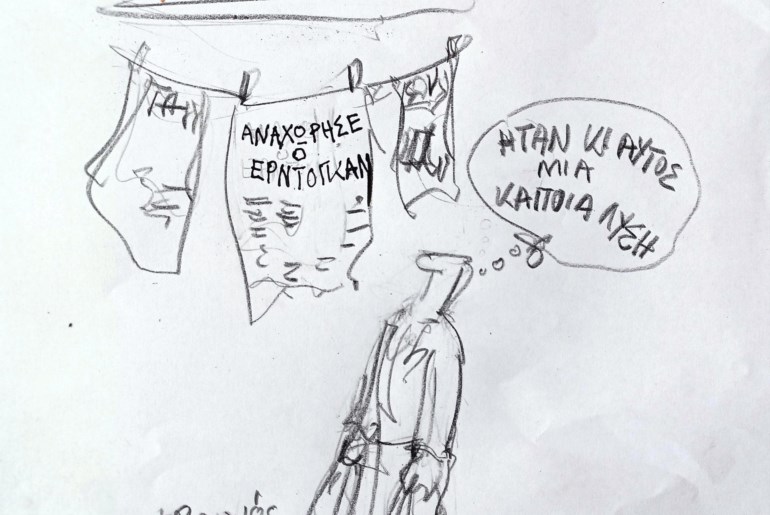 ΑΝΑΧΩΡΗΣΕ
Ο
ΕΡΝΤΟΓΚΑΝ
ΗΤΑΝ ΚΙ ΑΥΤΟΣ
ΜΙΑ
ΚΑΠΟΙΑ ΛΥΣΗ